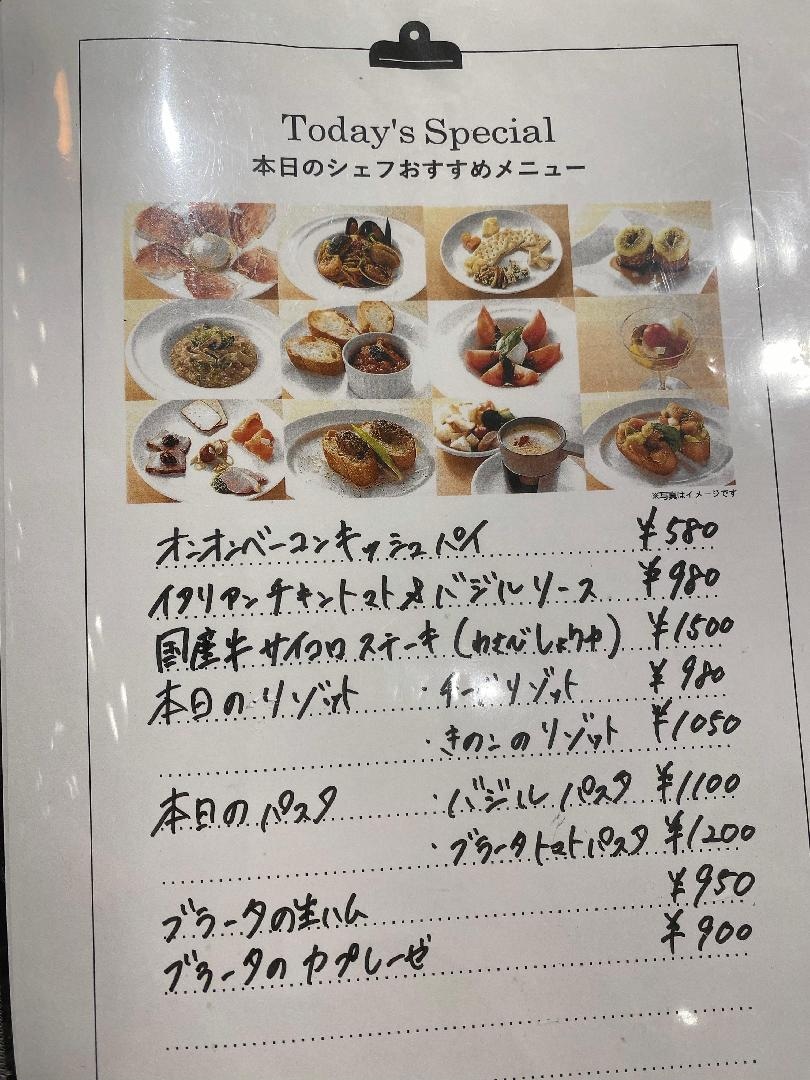 Today's Special
本日のシェフおすすめメニュー
※写真はイメージです
オニオンベーコンキッシュパイ ¥580
イタリアンチキントマト&バジルソース ¥980
国産牛サイコロステーキ(わさびしょうゆ) ¥1500
本日のリゾット ・チーズリゾット ¥980
・きのこのリゾット ¥1050
本日のパスタ ・バジルパスタ ¥1100
・ブラータトマトパスタ ¥1200
ブラータの生ハム ¥950
ブラータのカプレーゼ ¥900